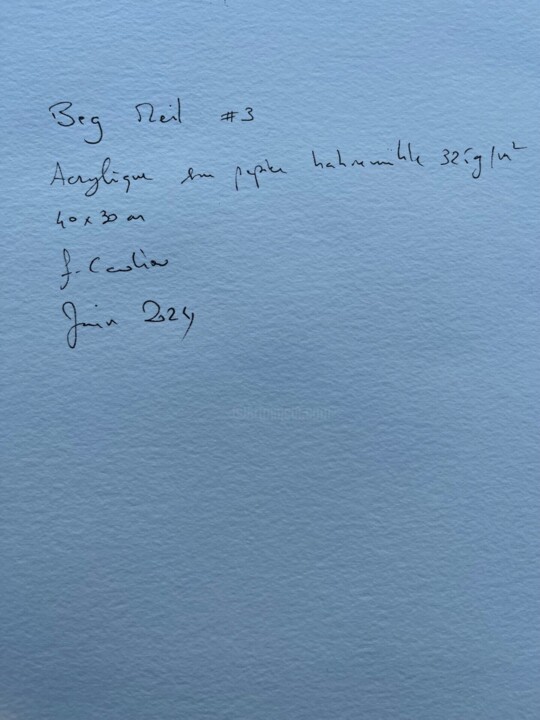 Beg Meil #3
Acrylique sur papier hahnemühle 325g/m²
40x30 cm
f.
Juin 2024